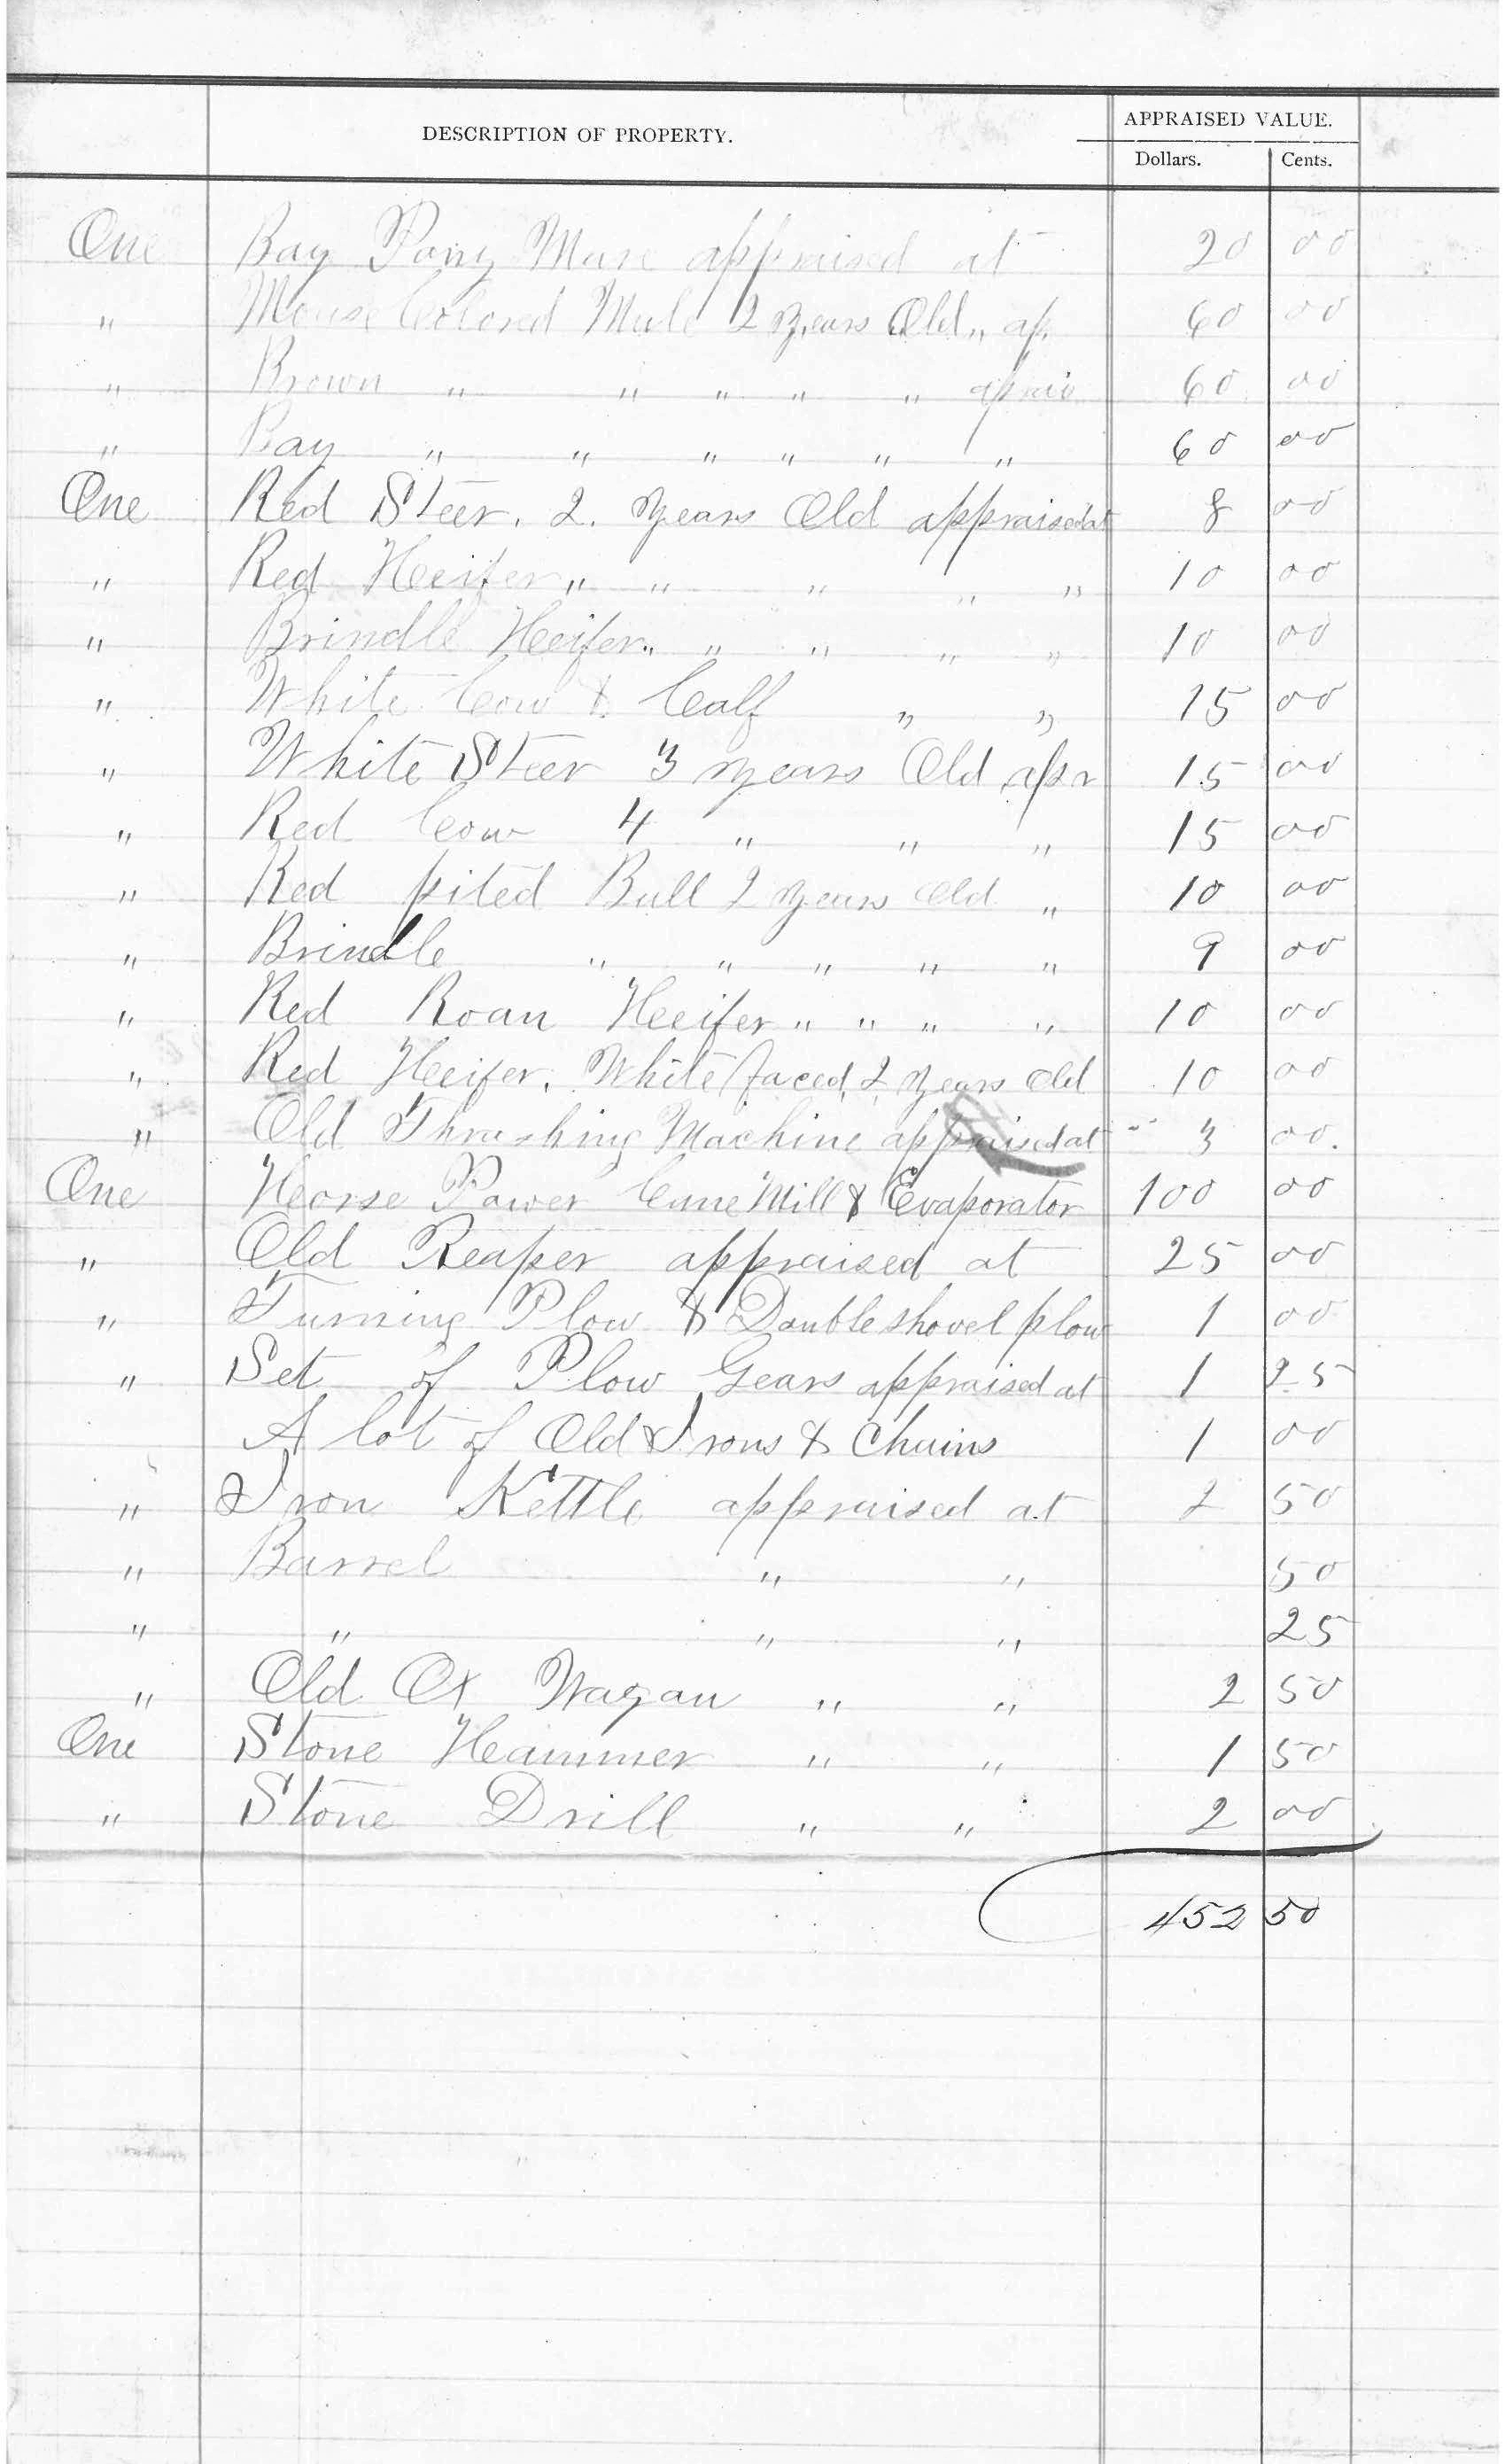 DESCRIPTION OF PROPERTY. APPRAISED VALUE.
Dollars. Cents.
One Bay Pony Mare appraised at 20 00
" Mouse Colored Mule 2 Years Old " ap. 60 00
" Brown " " " " " aprais 60 00
" Bay " " " " " " 60 00
One Red Steer. 2. Years Old appraised at 8 00
" Red Heeifer " " " " " 10 00
" Brindle Heeifer " " " " " 10 00
" White Cow & Calf " " 15 00
" White Steer 3 Years Old apr 15 00
" Red Cow 4 " " " 15 00
" Red pited Bull 2 Years Old " 10 00
" Brindle " " " " " 9 00
" Red Roan Heeifer " " " " 10 00
" Red Heeifer. White faced. 2 Years Old 10 00
" Old Thrashing Machine appraised at 3 00.
One Horse Power Cane Mill & Evaporator 100 00
" Old Reaper appraised at 25 00
" Turning Plow & Double shovel plow 1 00
" Set of Plow Gears appraised at 1 25
A lot of Old Irons & Chains 1 00
" Iron Kettle appraised at 2 50
" Barrel " " 50
" " " " 25
" Old Ox Wagan " " 2 50
One Stone Hammer " " 1 50
" Stone Drill " " 2 00
452 50